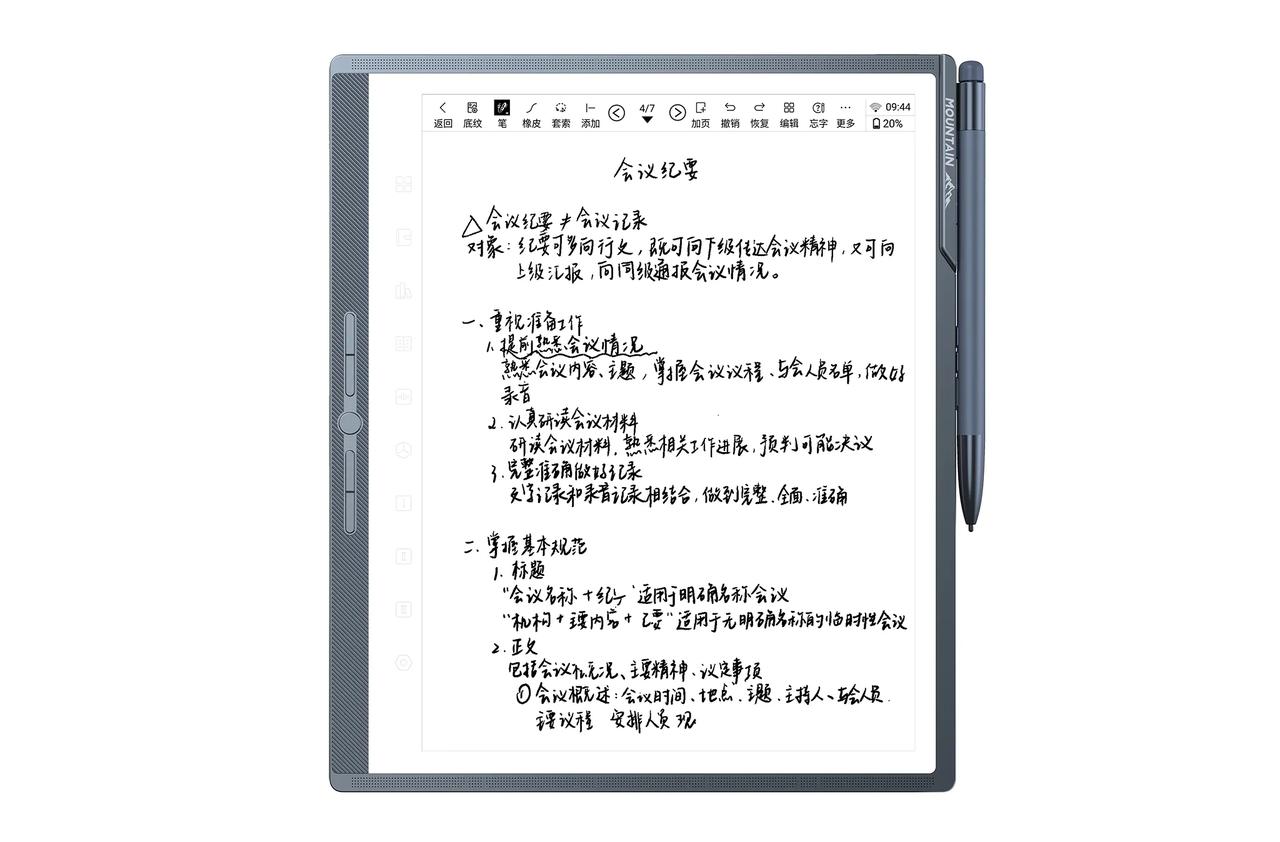 返回 底纹 笔 橡皮 套索 添加 4/7 加页 撤销 恢复 编辑 忘字 更多 09:44
20%
MOUNTAIN
会议纪要
△会议纪要≠会议记录
对象:纪要可多向行文,既可向下级传达会议精神,又可向
上级汇报,向同级通报会议情况。
一、重视准备工作
1.提前熟悉会议情况
熟悉会议内容、主题,掌握会议议程、与会人员名单,做好
录音
2.认真研读会议材料
研读会议材料,熟悉相关工作进展,预判可能决议
3.完整准确做好记录
文字记录和录音记录相结合,做到完整、全面、准确
二、掌握基本规范
1.标题
"会议名称+纪 适用于明确名称会议
"机构+主要内容+ 要"适用于无明确名称的临时性会议
2.正文
包括会议概况、主要精神、议定事项
①会议概述:会议时间、地点、主题、主持人、与会人员.
主要议程 安排人员